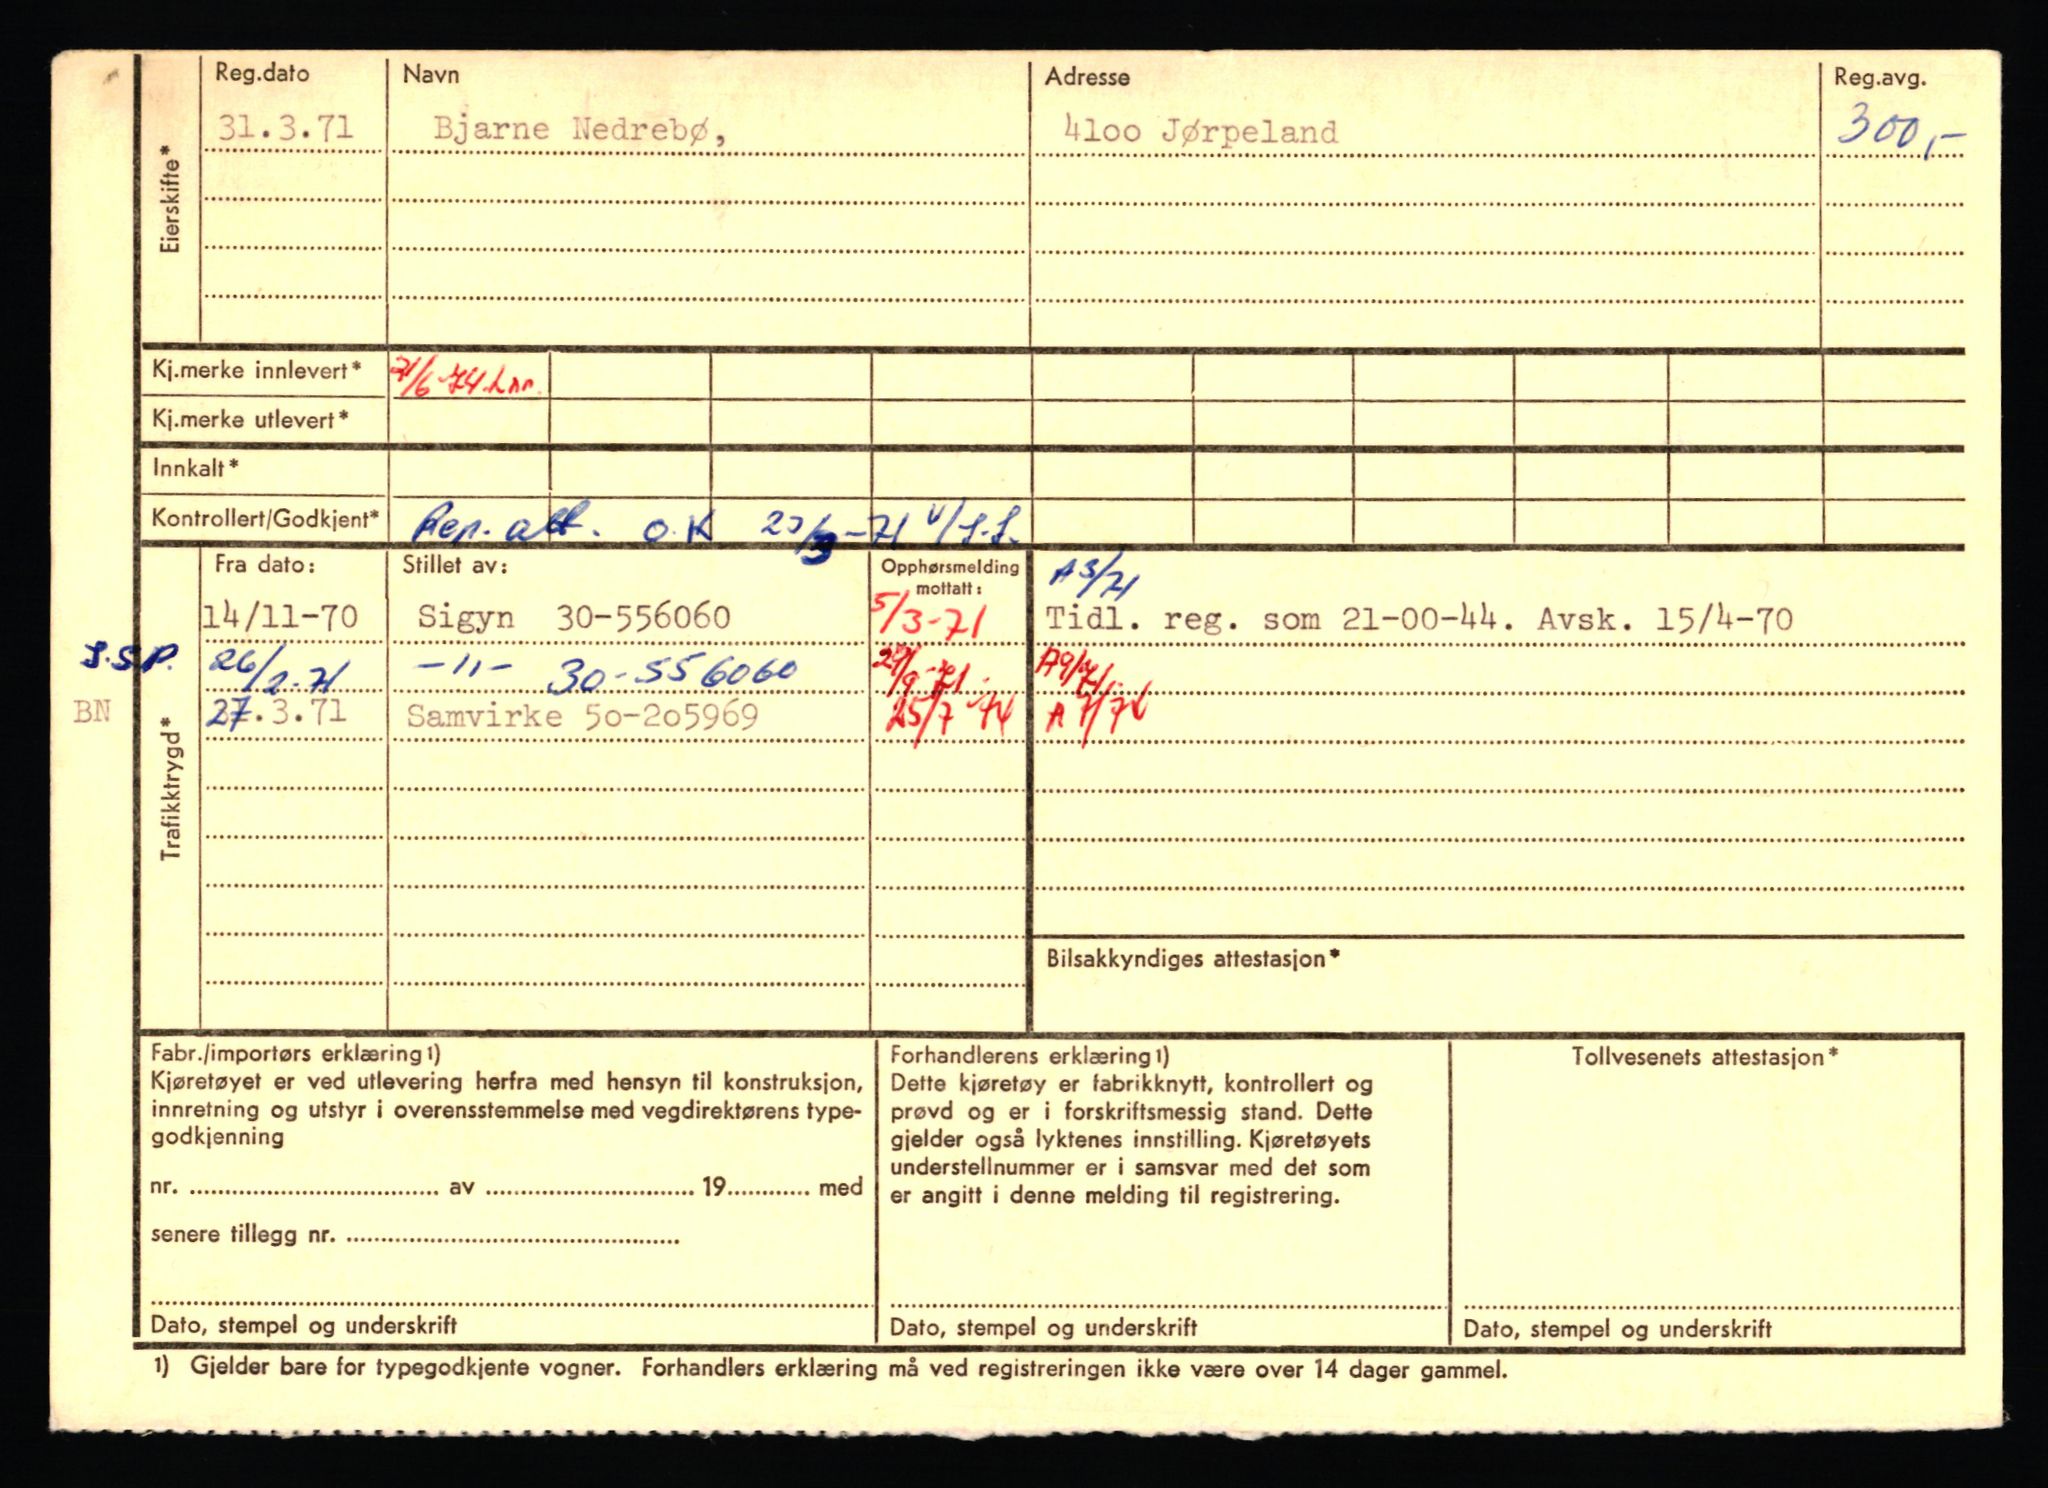 Eierskifte*
Reg.dato Navn Adresse Reg.avg.
31.3.71 Bjarne Nedrebø, 4100 Jørpeland 300,-
Kj.merke innlevert* 21/6-74.Lnr.
Kj.merke utlevert*
Innkalt*
Kontrollert/Godkjent* Rep. att. O.K 23/3-71 v/
Trafikktrygd*
Fra dato: Stillet av: Opphørsmelding mottatt: A 3/71
14/11-70 Sigyn 30-556060 5/3-71 Tidl. reg. som 21-00-44. Avsk. 15/4-70
S.S.P. 26/2-71 -"- 30-556060 29/9-71. A9/71.
BN 27.3.71 Samvirke 50-205969 25/7 74 A 7/74
Bilsakkyndiges attestasjon*
Fabr./importørs erklæring1)
Kjøretøyet er ved utlevering herfra med hensyn til konstruksjon,
innretning og utstyr i overensstemmelse med vegdirektørens type-
godkjenning
nr. .................... av .................... 19............ med
senere tillegg nr. ....................
Dato, stempel og underskrift
Forhandlerens erklæring1)
Dette kjøretøy er fabrikknytt, kontrollert og
prøvd og er i forskriftsmessig stand. Dette
gjelder også lyktenes innstilling. Kjøretøyets
understellnummer er i samsvar med det som
er angitt i denne melding til registrering.
Dato, stempel og underskrift
Tollvesenets attestasjon*
Dato, stempel og underskrift
1) Gjelder bare for typegodkjente vogner. Forhandlers erklæring må ved registreringen ikke være over 14 dager gammel.